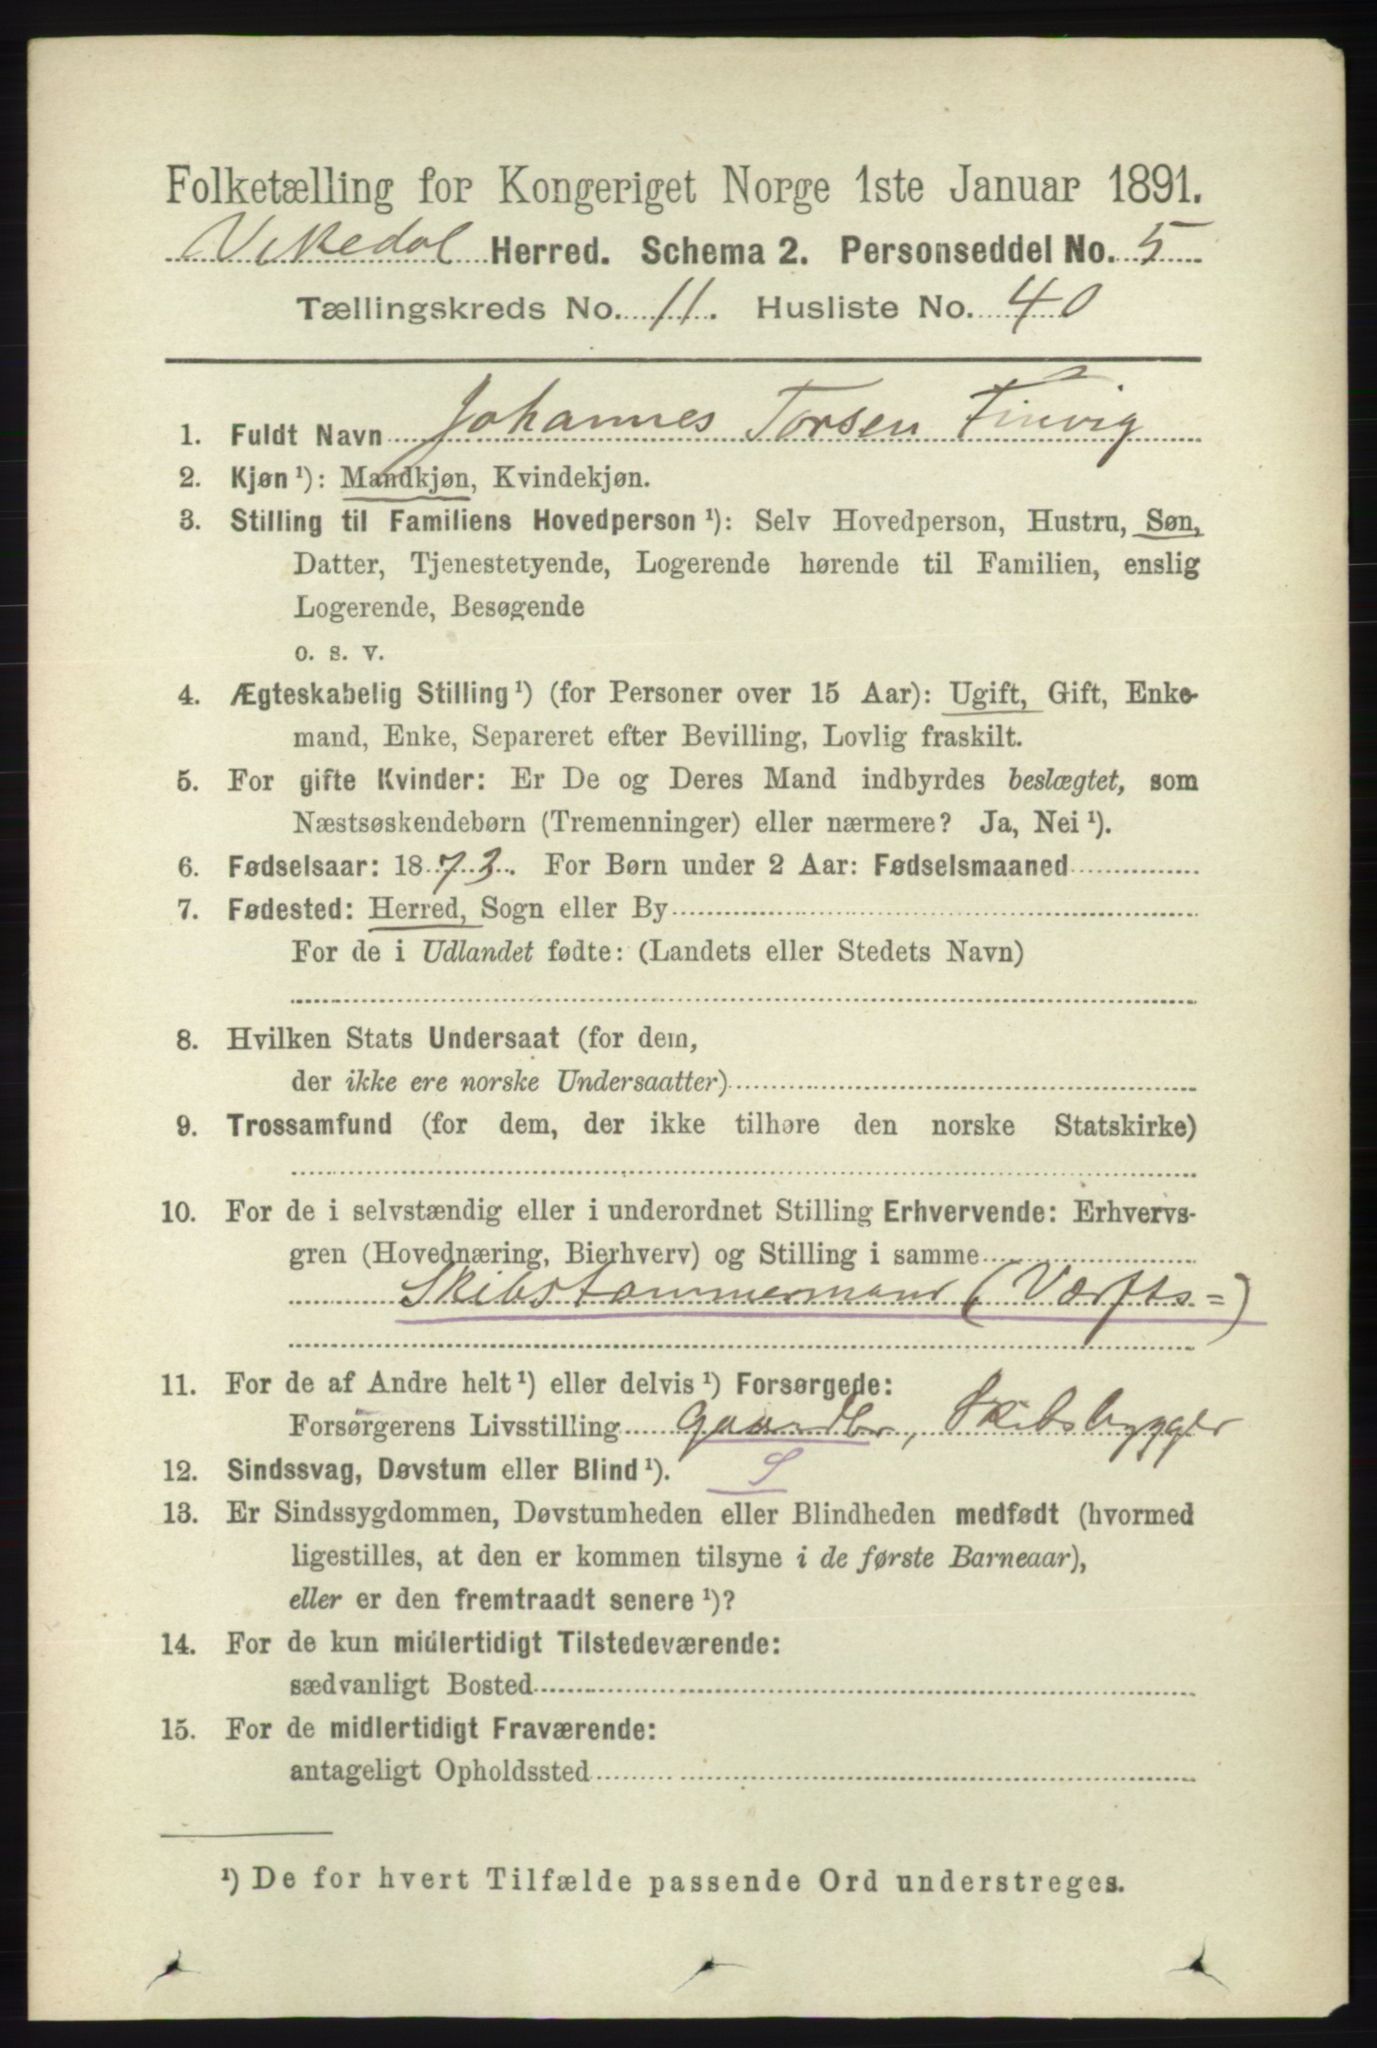 Folketælling for Kongeriget Norge 1ste Januar 1891.
Vikedal Herred. Schema 2. Personseddel No. 5
Tællingskreds No. 11. Husliste No. 40
1. Fuldt Navn Johannes Torsen Finvig
2. Kjøn ¹): Mandkjøn, Kvindekjøn.
3. Stilling til Familiens Hovedperson ¹): Selv Hovedperson, Hustru, Søn,
Datter, Tjenestetyende, Logerende hørende til Familien, enslig
Logerende, Besøgende
o. s. v.
4. Ægteskabelig Stilling ¹) (for Personer over 15 Aar): Ugift, Gift, Enke-
mand, Enke, Separeret efter Bevilling, Lovlig fraskilt.
5. For gifte Kvinder: Er De og Deres Mand indbyrdes beslægtet, som
Næstsøskendebørn (Tremenninger) eller nærmere? Ja, Nei ¹).
6. Fødselsaar: 1873. For Børn under 2 Aar: Fødselsmaaned
7. Fødested: Herred, Sogn eller By
For de i Udlandet fødte: (Landets eller Stedets Navn)
8. Hvilken Stats Undersaat (for dem,
der ikke ere norske Undersaatter)
9. Trossamfund (for dem, der ikke tilhøre den norske Statskirke)
10. For de i selvstændig eller i underordnet Stilling Erhvervende: Erhvervs-
gren (Hovednæring, Bierhverv) og Stilling i samme
Skibstømmermand (Værfts=)
11. For de af Andre helt ¹) eller delvis ¹) Forsørgede:
Forsørgerens Livsstilling Gaardbr, Skibsbygger
12. Sindssvag, Døvstum eller Blind ¹). S
13. Er Sindssygdommen, Døvstumheden eller Blindheden medfødt (hvormed
ligestilles, at den er kommen tilsyne i de første Barneaar),
eller er den fremtraadt senere ¹)?
14. For de kun midlertidigt Tilstedeværende:
sædvanligt Bosted
15. For de midlertidigt Fraværende:
antageligt Opholdssted
¹) De for hvert Tilfælde passende Ord understreges.